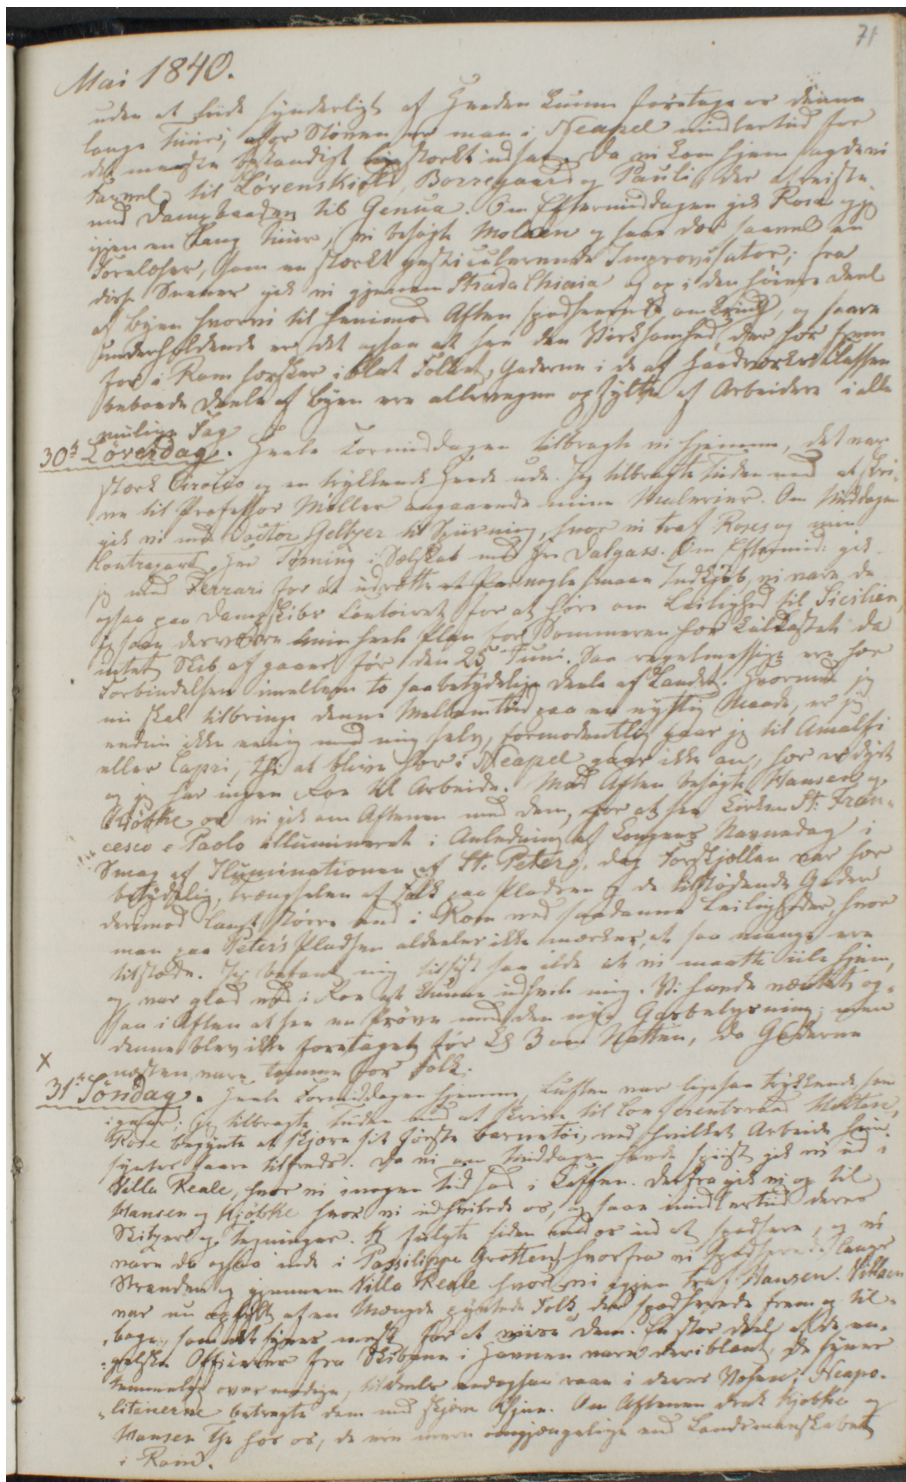 71
Mai 1840.
uden at lide synderligt af Heeden kunne foretage os denne
lange Tuur; af Støven er man i Neapel imidlertid for
det meeste bestandigt stærkt udsat. Da vi kom hjem sagde vi
Farvel til Løvenskiold, Borregaard og Pauli, der afreiste
med Dampbaaden til Genua. Om Eftermiddagen gik Rosa og jeg
igjen en lang Tuur, vi besøgte Moloen og saae der saavel en
Forelæser, som en stærkt gestikulerende Improvisator; fra
disse Scener gik vi gjennem Strada Chiaia og op i den høiere Deel
af Byen hvor vi til henimod Aften spadserede omkring, og saare
underholdende er det ogsaa at see den Virksomhed, der her frem
for i Rom hersker iblat Folket, Gaderne i de af Haandværksclassen
beboede Deele af Byen ere allevegne opfyldte af Arbeidere i alle
mulige Fag.
30te Løverdag. Heele Formiddagen tilbragte vi hjemme, det var
stærk Sirocco og en trykkende Heede ude. Jeg tilbragte Tiden med at skri-
ve til Professor Møller angaaende mine Malerier. Om Middagen
gik vi med Doctor Geltzer til Spiisning, hvor vi traf Roses og min
Contrapart, Hr Tørning i Selskab med Hr. Dalgass. Om Eftermid: gik
jeg med Ferrari for at udrette nogle smaae Indkjøb, vi vare da
ogsaa paa Dampskibs Contoiret for at høre om Leilighed til Sicilien,
jeg saae derved min heele Plan for Sommeren her kuldkastet da
intet Skib afgaaer før den 25 Juni. Saa regelmæssige ere her
Forbindelsen imellem to saa betydelige Deele af Landet. Hvormed jeg
nu skal tilbringe denne Mellemtid paa en nyttig Maade, er jeg
endnu ikke enig med mig selv, formodentlig gaaer jeg til Amalfi
eller Capri, thi at blive her i Neapel gaaer ikke an, her er dyrt
og jeg har ingen Roe til Arbeide. Mod Aften besøgte Hansen og
Kjøbke os vi gik om Aftenen med dem, for at see Kirken St: Fran-
cesco e Paolo illumineret i Anledning af Kongens Navnedag i
Smag af Iluminationen af St. Peter, dog Forskjellen var her
betydelig, Trængselen af Folk paa Pladsen og de tilstødende Gader
derimod langt større end i Rom ved saadanne Leiligheder, hvor
man paa Peters Pladsen aldeles ikke mærker, at saa mange ere
tilstæde. Jeg befandt mig tilsidst saa ilde at vi maatte iile hjem,
og var glad ved i Roe at kunne udhvile mig. Vi havde ventet og-
saa i Aften at see en Prøve med den nye Gasbelysning; men
denne blev ikke foretaget før Kl 3 om Natten, da Gaderne
næsten vare tomme for Folk.
X
31te Søndag. Heele Formiddagen hjemme, Luften var ligesaa trykkende som
igaar; jeg tilbragte Tiden med at skrive til Conferentsraad
Rose begyndte at skjære sit første Barnetøi, med hvilket Arbeide hun
syntes saare tilfreds. Da vi om Middagen havde spiist gik vi ud i
Villa Reale, hvor vi i nogen Tid sad i Caffeen. Derfra gik vi op til
Hansen og Kjøbke hvor vi udhvilede os, og saae imidlertid deres
Skitzer og Tegninger. K fulgte siden med os ud at spadsere, og vi
vare da ogsaa inde i Possilippo Grotten, hvorfra vi spadserede langs
Stranden og gjennem Villa Reale hvor vi igjen traf Hansen. Villaen
var nu opfyldt af en Mængde pyntede Folk, der spadserede frem og til-
bage, som det synes mest for at viise dem. En stor Deel af de en-
gelske Officerer fra Skibene i Havnen vare deriblant, de synes
temmelig overmodige, tildeels endogsaa raae i deres Væsen; Neapo-
litanerne betragte dem med skjæve Øjne. Om Aftenen drak Kjøbke og
Hansen The hos os, de ere mere omgjængelige end Landsmandskabet
i Rom.